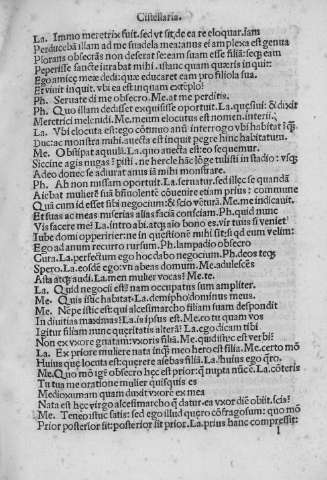 Cistellaria.
La. Immo meretrix fuit. sed vt sit, de ea re eloquar. Iam
Perducebā illam ad me suadela mea: anus ei amplexa est genua
Plorans obsecrās non deserat se: eam suam esse filiā: seq; eam
Peperisse sancte iurabat mihi. istanc quam quæris in quit:
Ego amicę meæ dedi: quæ educaret eam pro filiola sua.
Et viuit in quit. vbi ea est inquam extēplo?
Ph. Seruate di me obsecro. Me. at me perditis.
Ph. Quo illam dedisset exquisisse oportuit. La. quęsiui: & dixit
Meretrici melenidi. Me. meum elocutus est nomen. interii.
La. Vbi elocuta est: ego cōtinuo anū interrogo vbi habitat īq̄.
Duc: ac monstra mihi. auecta est inquit pegre hinc habitatum.
Me. Obsipat aquulā. La. quo auecta est: eo sequemur.
Siccine agis nugas? pisti . ne hercle hāc lōge tulisti in stadio: vsq;
Adeo donec se adiurat anus iā mihi monstrare.
Ph. Ab non missam oportuit. La. seruatur. sed illęc se quandā
Aiebat mulierē suā bn̄iuolentē cōuenire etiam prius: commune
Quā cum id esset sibi negocium: & scio vētura. Me. me indicauit.
Et suas ac meas miserias alias faciā consciam. Ph. quid nunc
Vis facere me? La. intro abi. atq; aīo bono es. vir tuus si veniet
Iube domi opperirier: ne in quęstionē mihi sit: si qd eum velim:
Ego ad anum recurro rursum. Ph. lampadio obsecro
Cura. La. perfectum ego hoc dabo negocium. Ph. deos teq;
Spero. La. eosdē ego: vn abeas domum. Me. adulescēs
Asta atq; audi. La. men mulier vocas? Me. te.
La. Quid negocii est? nam occupatus sum ampliter.
Me. Quis istic habitat. La. demipho dominus meus.
Me. Nēpe istic est: qui alcesimarcho filiam suam despondit
In diuitias maximas? La. is ipsus est. Me. eo tu quam vos
Igitur filiam nunc queritatis alterā? La. ego dicam tibi
Non ex vxore gnatam: vxoris filiā. Me. quid istuc est verbi?
La. Ex priore muliere nata inq̄; meo hero est filia. Me. certo mō
Huius quę locuta est quęrere aiebas filiā. La. huius ego q̄ro.
Me. Quo mō igr̄ obsecro hęc est prior: q̄ nupta nūc ē. La. cōteris
Tu tua me oratione mulier quisquis es
Medioxumam quam duxit vxorē ex mea
Nata est hęc virgo alcesimarcho q̄ datur. ea vxor diē obiit. scis?
Me. Teneo istuc satis: sed ego illud quęro cōfragosum: quo mō
Prior posterior sit: posterior sit prior. La. prius hanc compressit:
l